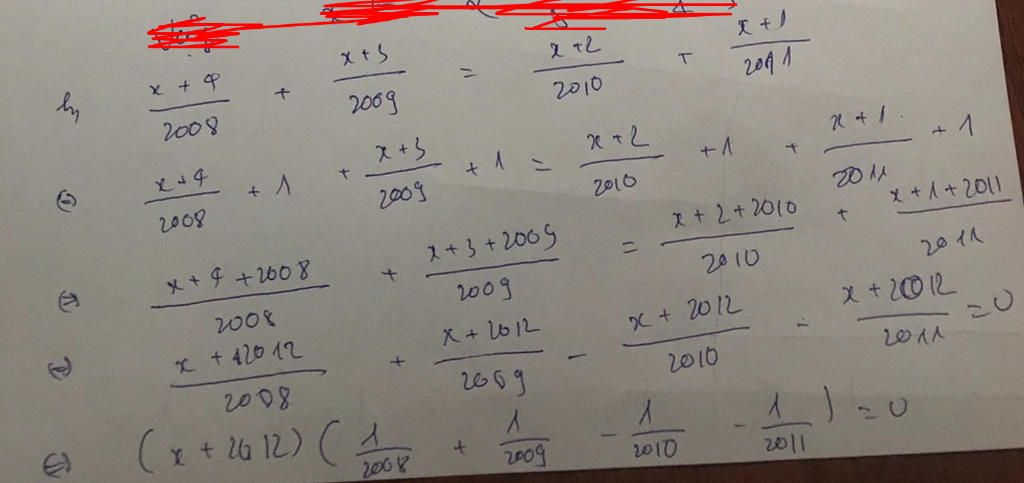 h, x+4/2008 + x+3/2009 = x+2/2010 + x+1/2011
⇔ x+4/2008 + 1 + x+3/2009 + 1 = x+2/2010 + 1 + x+1/2011 + 1
⇔ x+4+2008/2008 + x+3+2009/2009 = x+2+2010/2010 + x+1+2011/2011
⇔ x+2012/2008 + x+2012/2009 - x+2012/2010 - x+2012/2011 = 0
⇔ (x+2012)(1/2008 + 1/2009 - 1/2010 - 1/2011) = 0